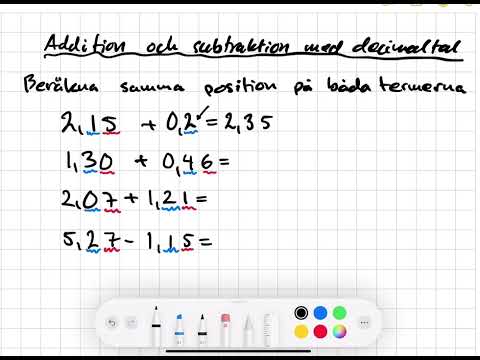 Addition och subtraktion med decimaltal
Beräkna samma position på båda termerna
2,15 + 0,2 = 2,35
1,30 + 0,46 =
2,07 + 1,21 =
5,27 - 1,15 =